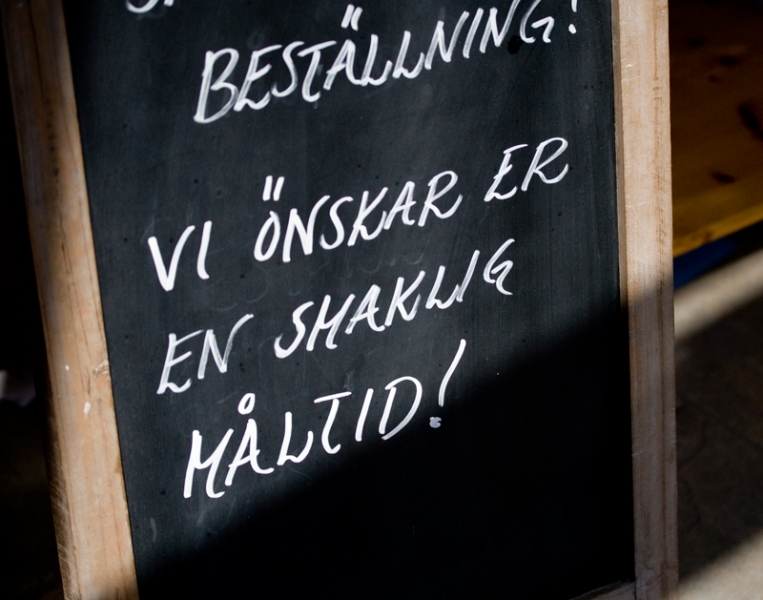 BESTÄLLNING!
VI ÖNSKAR ER
EN SMAKLIG
MÅLTID!